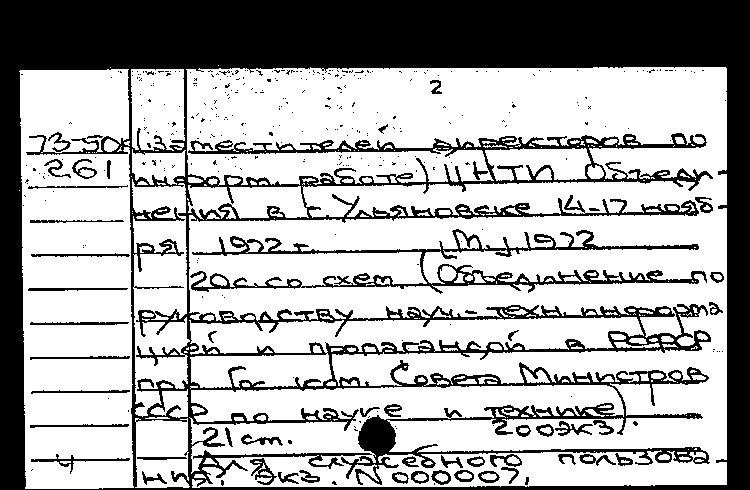 2
73-50к (заместителей директоров по
261 информ. работе) ЦНТИ Объеди-
нения в г. Ульяновске 14-17 нояб-
ря 1972 г. М., 1972
20с. со схем. (Объединение по
руководству науч.-техн. информа
цией и пропагандой в РСФСР
при Гос. ком. Совета Министров
СССР по науке и технике)
21 см. 200экз.
4 Для служебного пользова-
ния. Экз. N 000007.